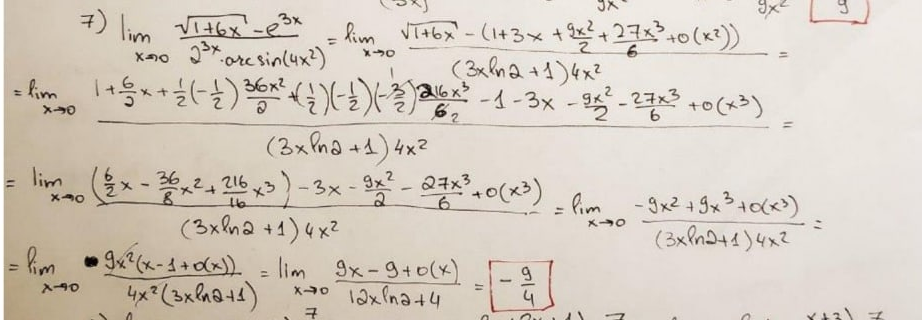 7) lim x→0 (√(1+6x) - e^(3x)) / (2^(3x) · arcsin(4x²)) = lim x→0 (√(1+6x) - (1+3x+9x²/2+27x³/6+o(x²))) / ((3xln2+1)4x²) =
= lim x→0 (1+6/2x+1/2(-1/2)36x²/2+(1/2)(-1/2)(-3/2)216x³/6 -1-3x-9x²/2-27x³/6+o(x³)) / ((3xln2+1)4x²) =
= lim x→0 ((6/2x-36/8x²+216/16x³)-3x-9x²/2-27x³/6+o(x³)) / ((3xln2+1)4x²) = lim x→0 (-9x²+9x³+o(x³)) / ((3xln2+1)4x²) =
= lim x→0 9x²(x-1+o(x)) / (4x²(3xln2+1)) = lim x→0 (9x-9+o(x)) / (12xln2+4) = -9/4